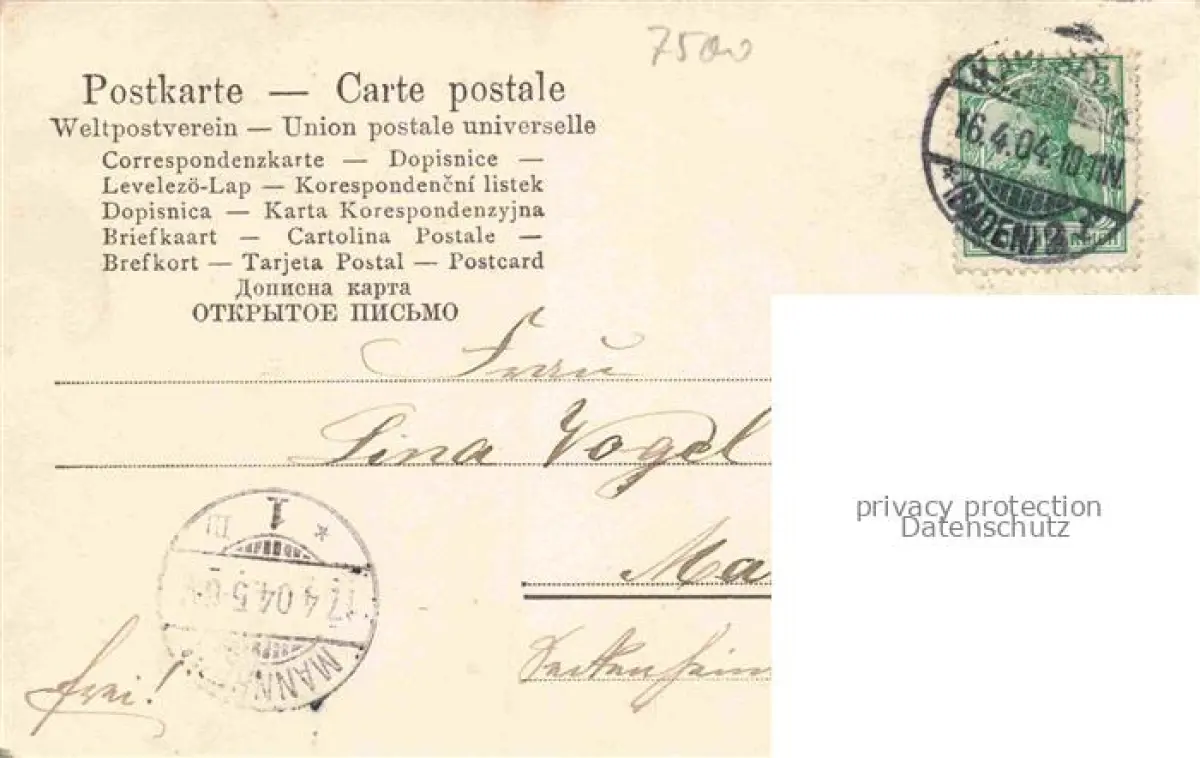 7500
Postkarte — Carte postale
Weltpostverein — Union postale universelle
Correspondenzkarte — Dopisnice —
Levelezö-Lap — Korespondenční listek
Dopisnica — Karta Korespondenzyjna
Briefkaart — Cartolina Postale —
Brefkort — Tarjeta Postal — Postcard
Дописна карта
ОТКРЫТОЕ ПИСЬМО
16.4.04.
*(BADEN)2
REICH
Frau
Lina Vogel
privacy protection
Datenschutz
1
17.4.04.5
MANN
Ma
frei!